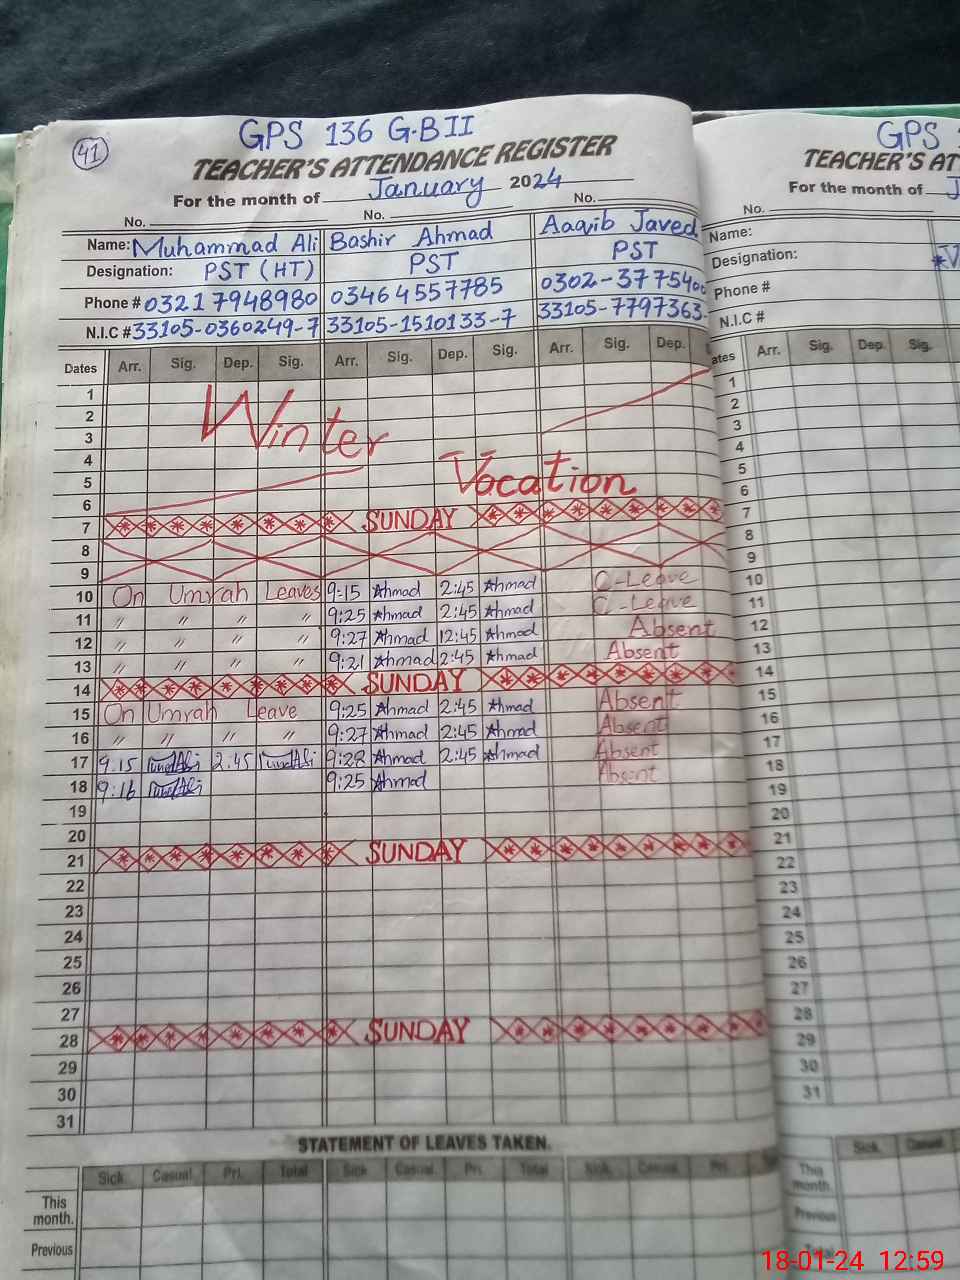 41
GPS 136 G.B II
TEACHER'S ATTENDANCE REGISTER
For the month of January 2024
No. No. No.
Name: Muhammad Ali Bashir Ahmad Aaqib Javed
Designation: PST (HT) PST PST
Phone # 03217948980 03464557785 0302-37754
N.I.C # 33105-0360249-7 33105-1510133-7 33105-7797363-
Dates Arr. Sig. Dep. Sig. Arr. Sig. Dep. Sig. Arr. Sig. Dep.
1 Winter
2
3
4
5 Vacation
6
7 SUNDAY
8
9
10 On Umrah Leaves 9-15 Ahmad 2:45 Ahmad C-Leave
11 " " " " 9:25 Ahmad 2:45 Ahmad C-Leave
12 " " " " 9:27 Ahmad 12:45 Ahmad Absent
13 " " " " 9:21 Ahmad 2:45 Ahmad Absent
14 SUNDAY
15 On Umrah Leave 9:25 Ahmad 2:45 Ahmad Absent
16 " " " " 9:27 Ahmad 2:45 Ahmad Absent
17 9:15 2:45 9:28 Ahmad 2:45 Ahmad Absent
18 9:16 9:25 Ahmad Absent
19
20
21 SUNDAY
22
23
24
25
26
27
28 SUNDAY
29
30
31
STATEMENT OF LEAVES TAKEN.
Sick Casual Pri. Total Sick Casual Pri. Total Sick. Casual Pri.
This
month.
Previous
GPS
TEACHER'S AT
For the month of J
No.
Name:
Designation:
Phone #
N.I.C #
ates Arr. Sig. Dep. Sig.
1
2
3
4
5
6
7
8
9
10
11
12
13
14
15
16
17
18
19
20
21
22
23
24
25
26
27
28
29
30
31
Sick Casual
This
month.
Previous
Total
18-01-24 12:59